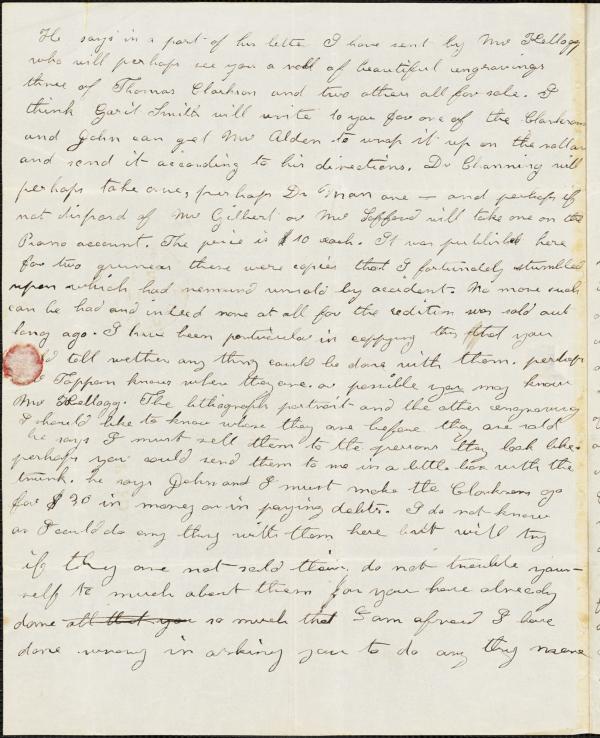 He says in a part of his letter I have sent by Mr Kellogg
who will perhaps see you a roll of beautiful engravings
three of Thomas Clarkson and two others all for sale. I
think Gerit Smith will write to you for one of the Clarksons
and John can get Mr Alden to wrap it up on the rollar
and send it according to his directions. Dr Channing will
perhaps take one, perhaps Dr Man one — and perhaps if
not dispord of Mr Gilbert or Mr Safford will take one on the
Piano account. The price is $10 each. It was published here
for two guineas these were copies that I fortunately stumbled
upon which had remaind unsold by accident. No more such
can be had and indeed none at all for the edition was sold out
long ago. I have been perticular in coppying this that you
tell wether any thing could be done with them. perhaps
Tappan knows where they are. or possible you may know
Mr Kellogg. The lithograph portrait and the other engraving
I should like to know whose they are before they are sold
he says I must sell them to the persons they look like.
perhaps you could send them to me in a little box with the
trunk. he says John and I must make the Clarksons go
for $30 in money or in paying debts. I do not know
as I could do any thing with them here but will try
if they are not sold their. do not trouble your-
self to much about them for you have already
done all that you so much that I am afraid I have
done wrong in asking you to do any thing more